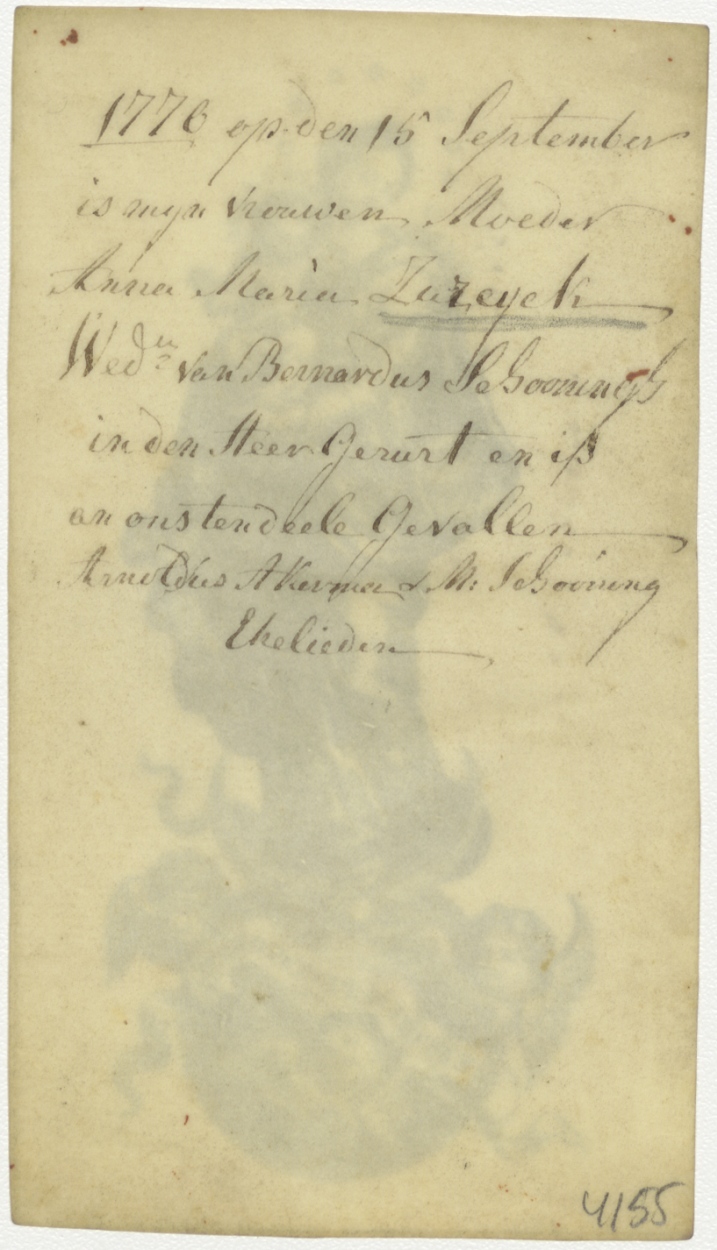 1776 op den 15 September
is myn vrouwen Moeder
Anna Maria
Wed.e van Bernardus Schoonings
in den Heer Gerust en is
an ons ten deele Gevallen
Arnoldus Akerma & M: Schooning
Ehelieden
4155